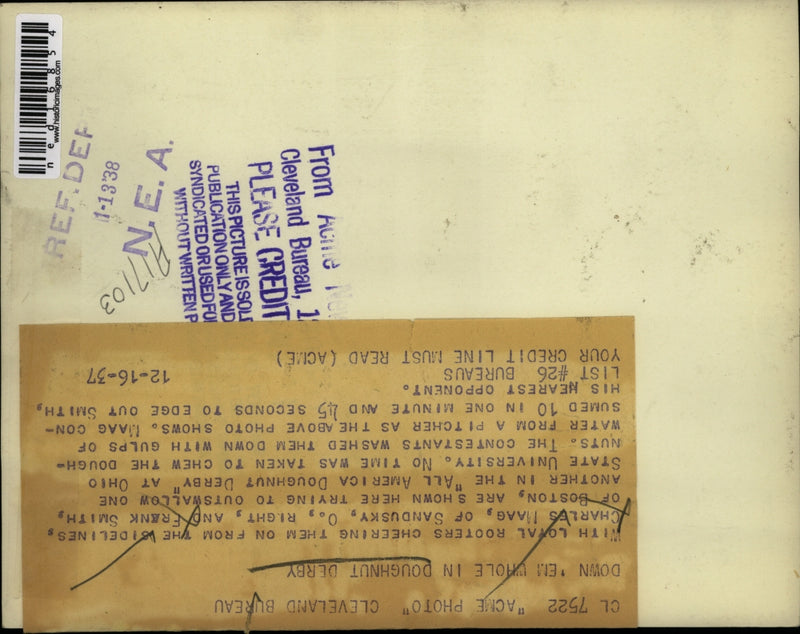 ned16854
www.historicimages.com
REF. DEP
1-13'38
N. E. A.
A17103
From Acme
Cleveland Bureau,
PLEASE CREDIT
THIS PICTURE IS SOL
PUBLICATION ONLY AND
SYNDICATED OR USED FO
WITHOUT WRITTEN P
CL 7522 "ACME PHOTO" CLEVELAND BUREAU
DOWN 'EM WHOLE IN DOUGHNUT DERBY
WITH LOYAL ROOTERS CHEERING THEM ON FROM THE SIDELINES,
CHARLES HAAG, OF SANDUSKY, O., RIGHT, AND FRANK SMITH,
OF BOSTON, ARE SHOWN HERE TRYING TO OUTSWALLOW ONE
ANOTHER IN THE "ALL AMERICA DOUGHNUT DERBY" AT OHIO
STATE UNIVERSITY. NO TIME WAS TAKEN TO CHEW THE DOUGH-
NUTS. THE CONTESTANTS WASHED THEM DOWN WITH GULPS OF
WATER FROM A PITCHER AS THE ABOVE PHOTO SHOWS. HAAG CON-
SUMED 10 IN ONE MINUTE AND 45 SECONDS TO EDGE OUT SMITH,
HIS NEAREST OPPONENT.
LIST #26 BUREAUS 12-16-37
YOUR CREDIT LINE MUST READ (ACME)